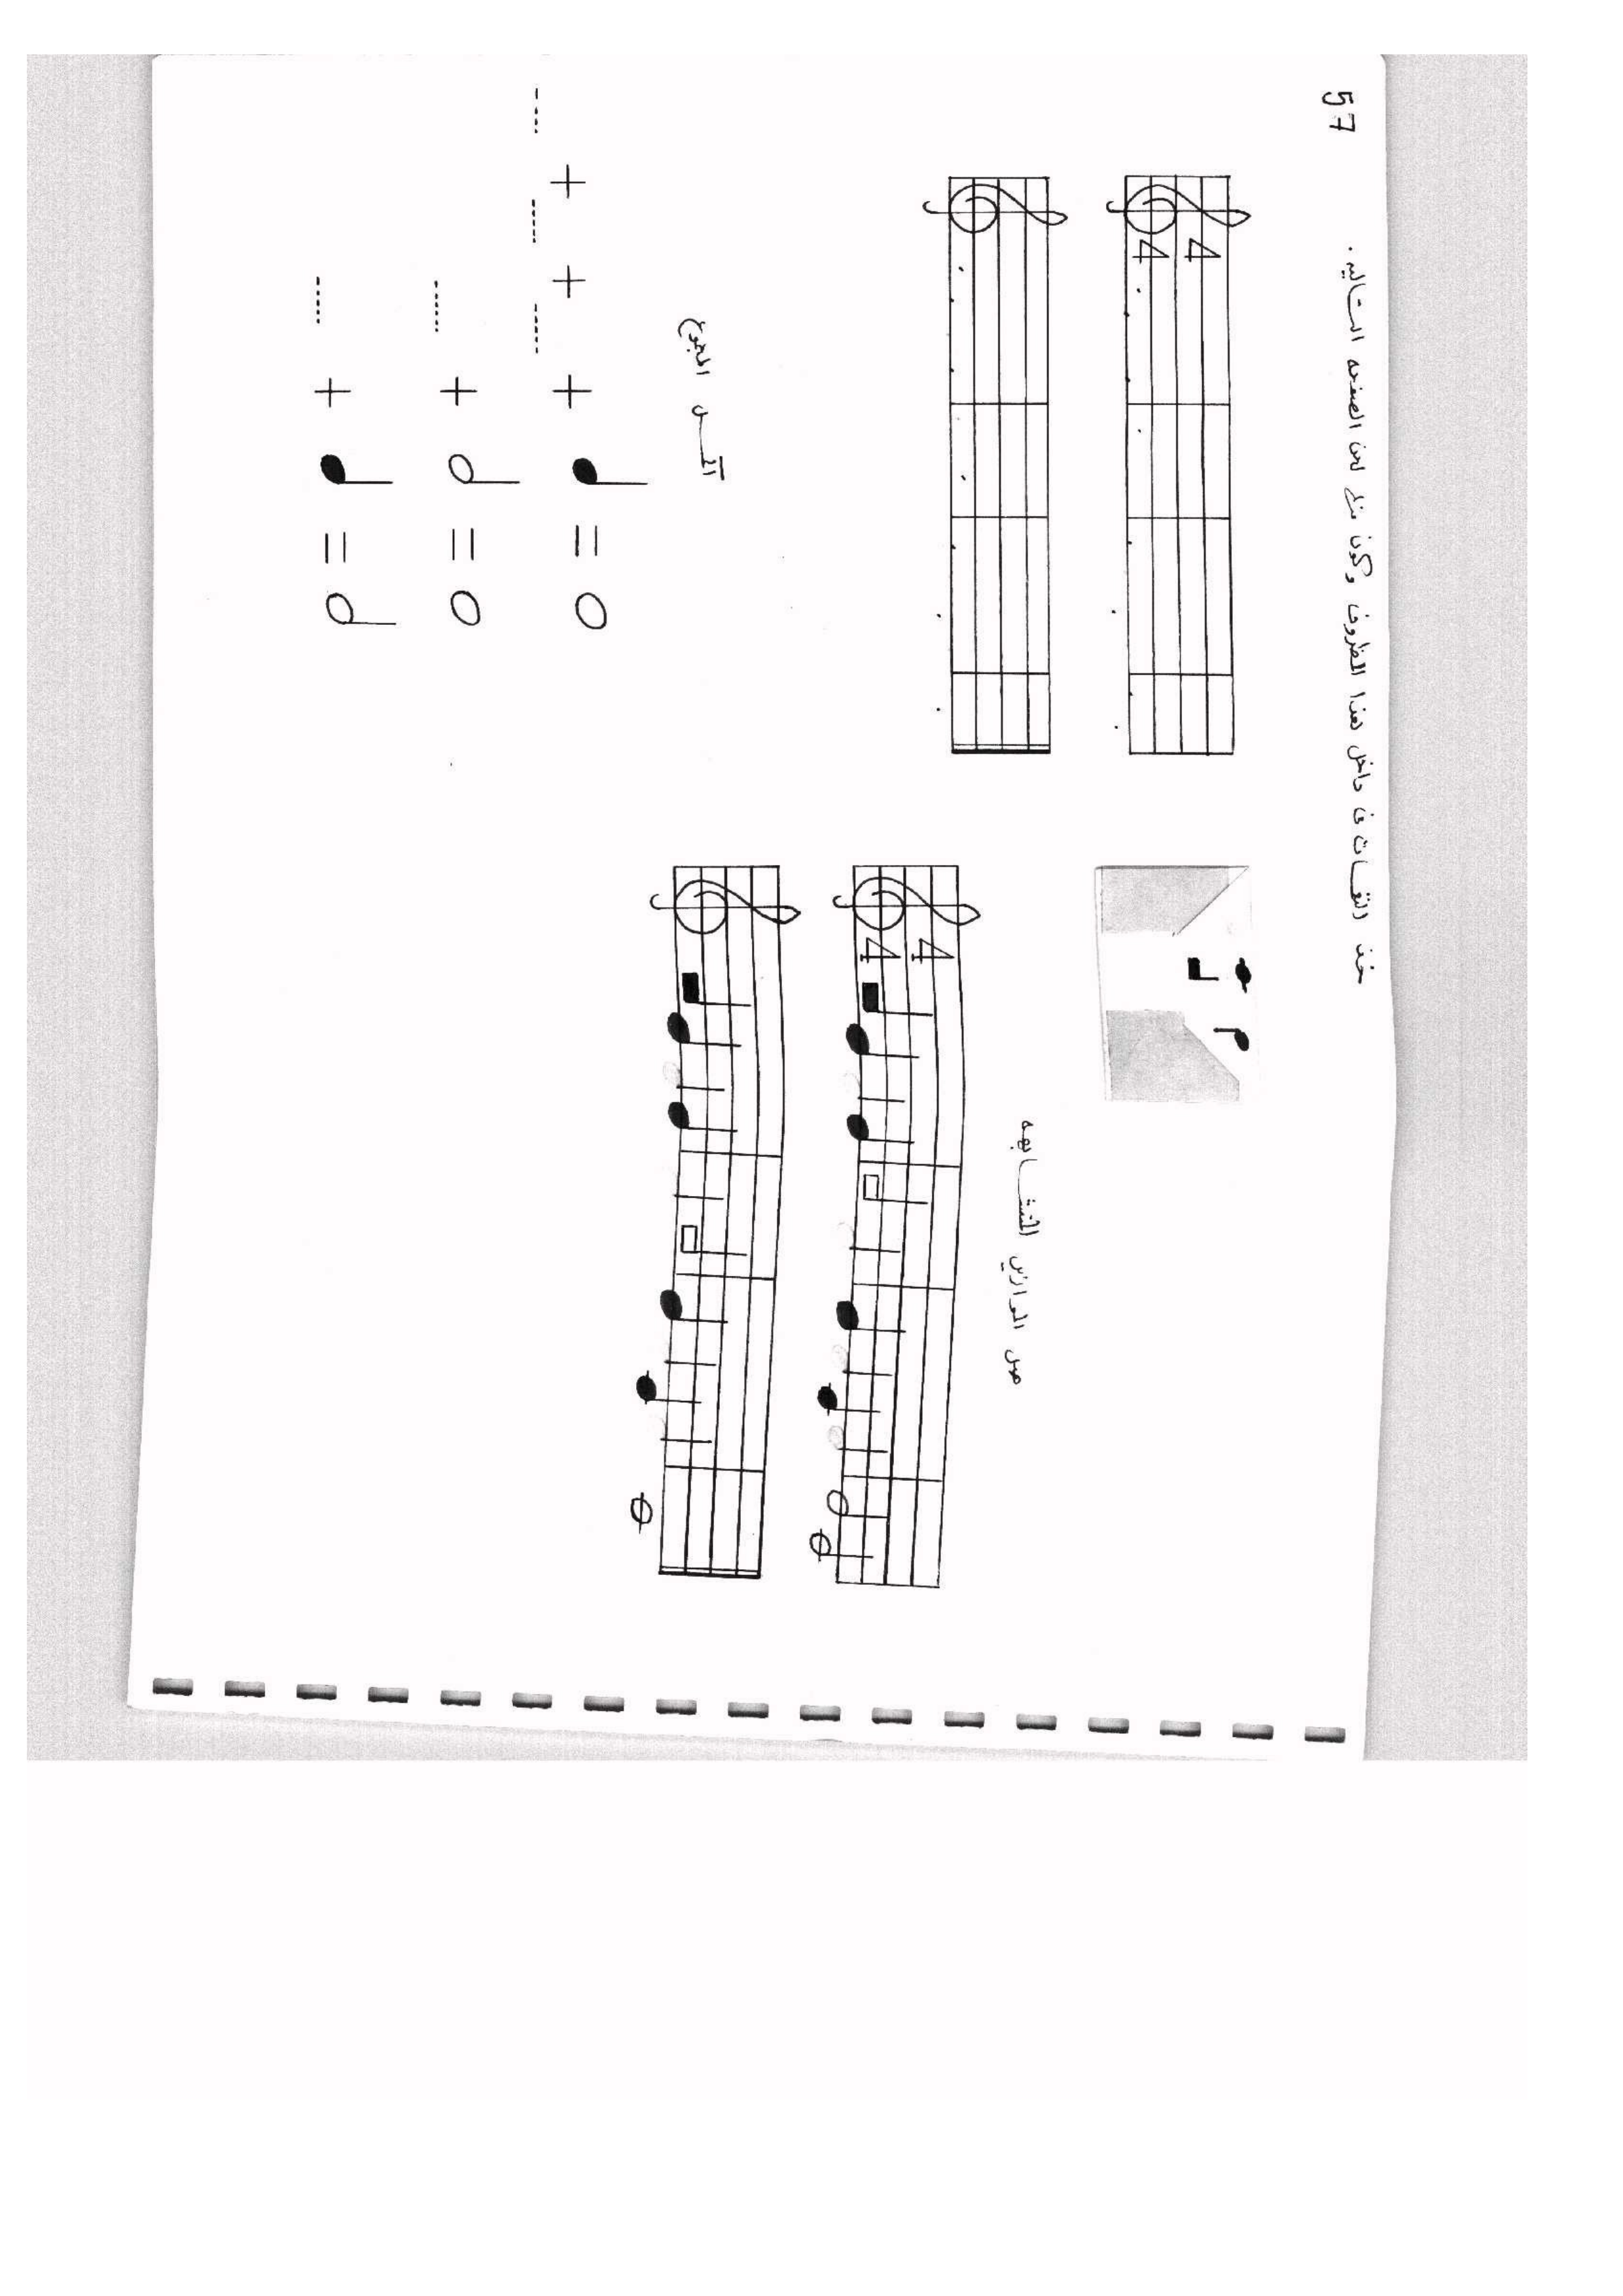 57
خذ النغمات فى داخل هذا الظروف وكون منها لحن الصفحه التاليه .
صل الموازين المتشابهه
4
4
4
4
أكمل المجموع
= + + +
= +
= +